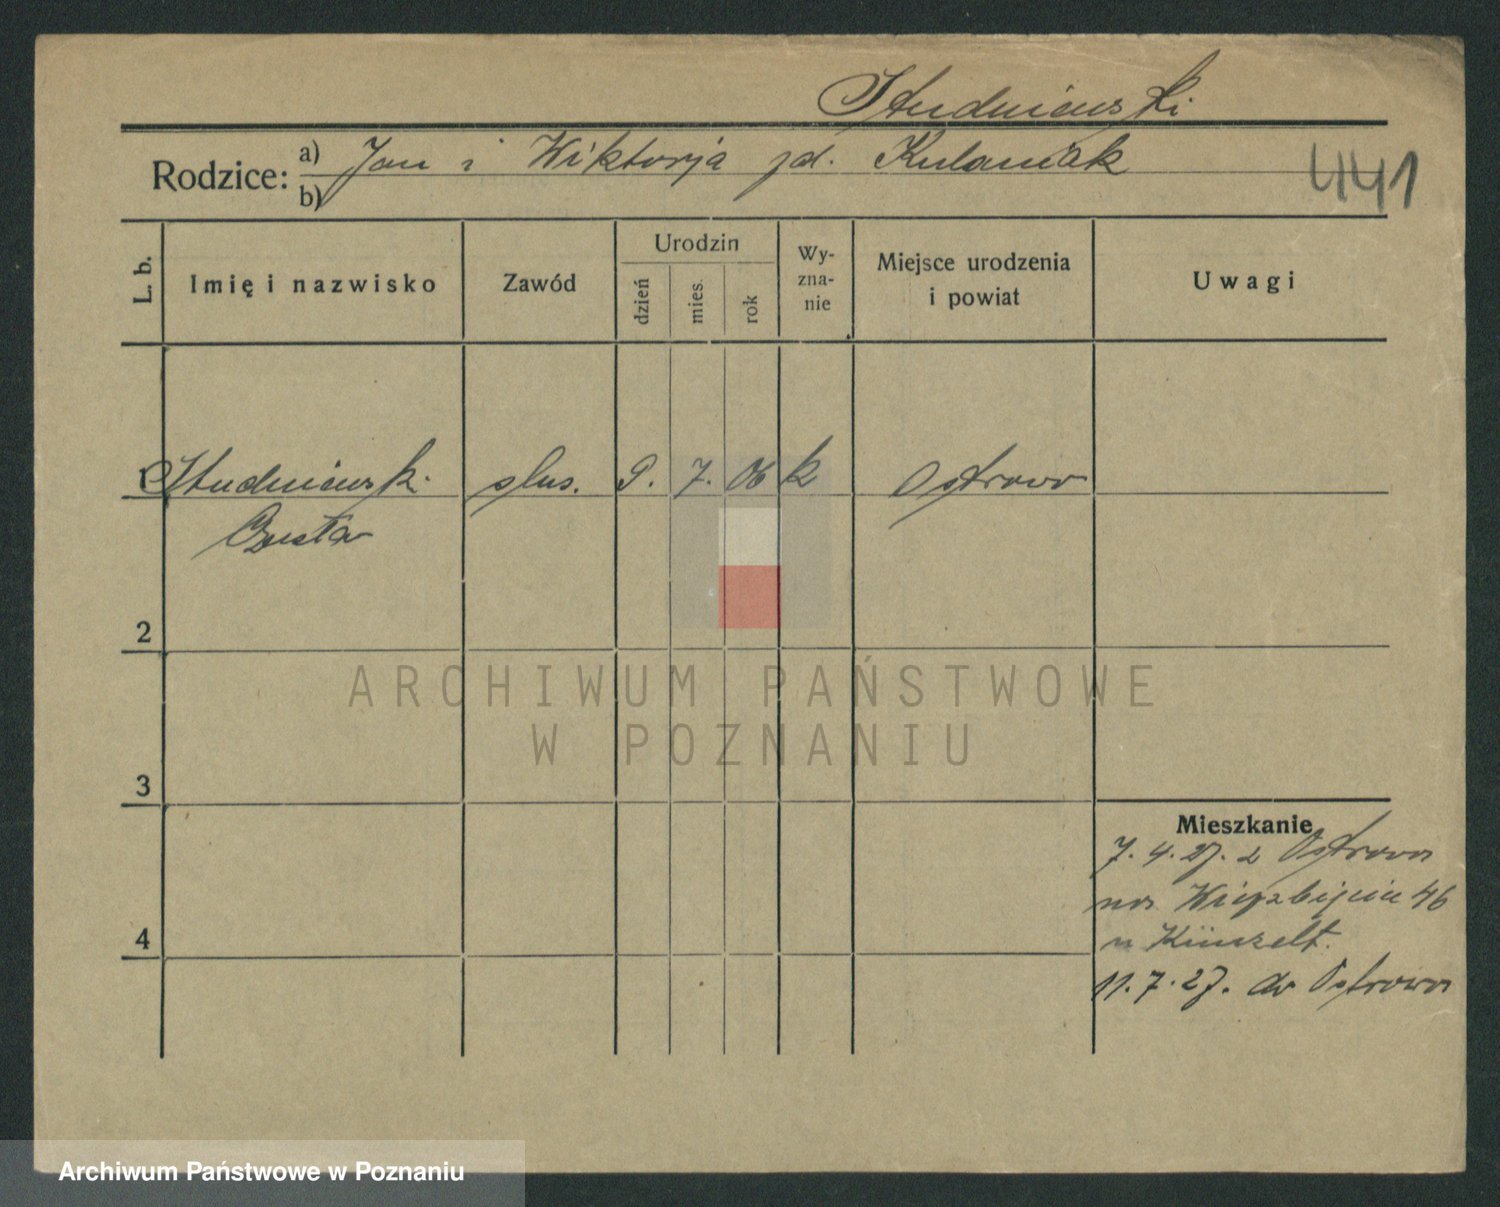 Studniewski
Rodzice: a) Jan i Wiktorja zd. Kulawiak
b)
441
L. b. Imię i nazwisko Zawód Urodzin dzień mies. rok Wyznanie Miejsce urodzenia i powiat Uwagi
1 Studniewski ślus. 9. 7. 06 k Ostrowo
Gustaw
2
ARCHIWUM PAŃSTWOWE
W POZNANIU
3
Mieszkanie
7. 4. 27. z Ostrowa
na 46
4
u
11. 7. 27. do Ostrowa
Archiwum Państwowe w Poznaniu